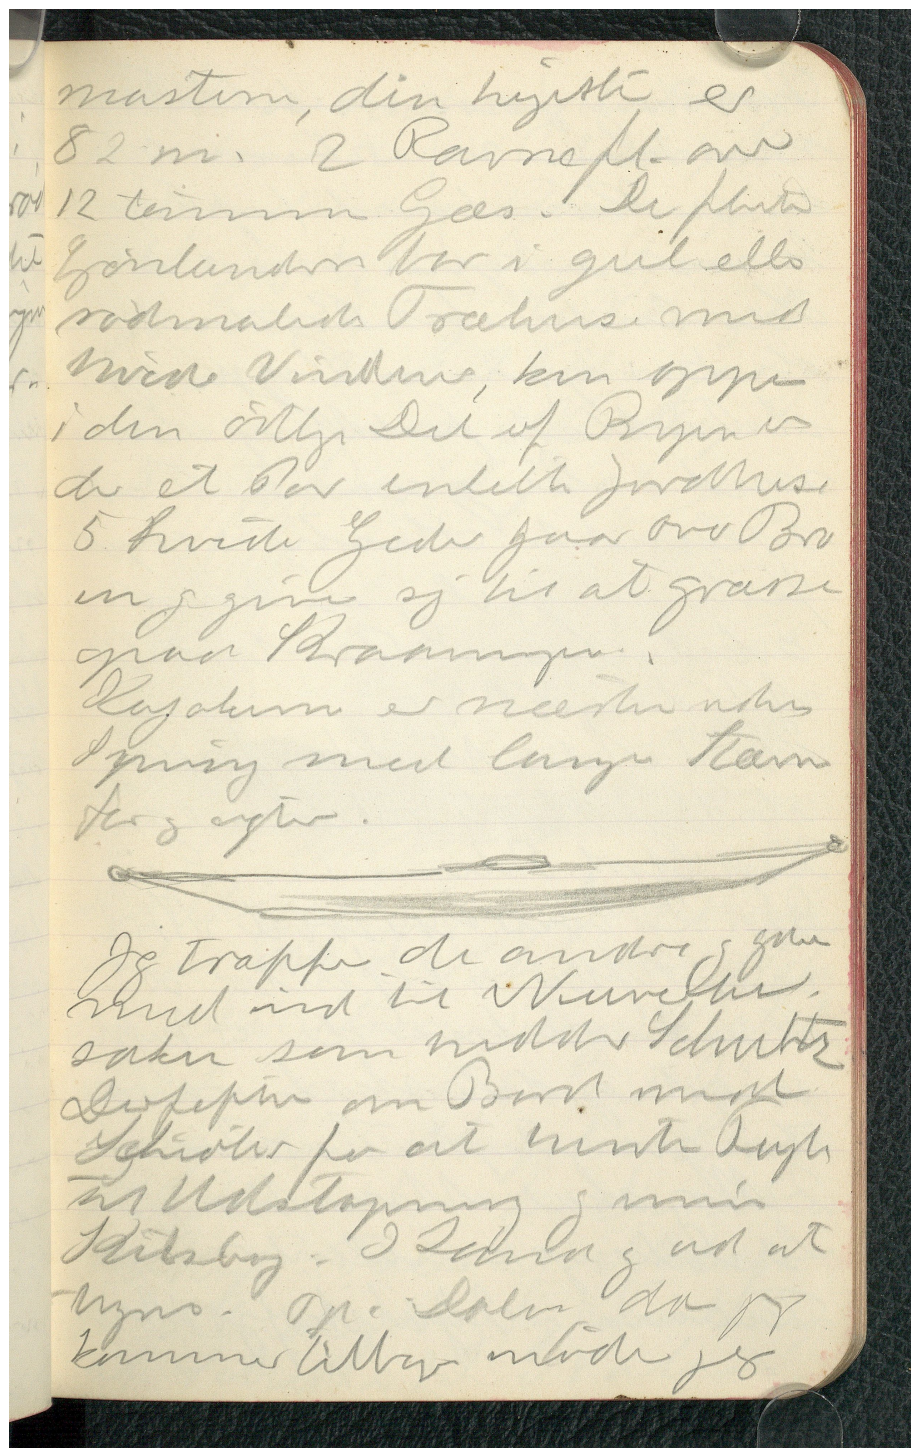 masterne, den højeste er
82 m. 2 Ravne fl. over
12 tamme Gæs. De fleste
Grönlændere bor i gul eller
rödmalede Træhuse med
hvide Vinduer, kun oppe
i den östlige Del af Byen er
der et Par enkelte Jordhuse
5 hvide Geder gaar over Bro
en g giver sig til at græsse
paa Skraaningen.
Kajakerne er næsten uden
Spring med lange Stævne
for g agter.
Jeg træffer de andre g gaar
med ind til
som hedder Schultz
Derefter om Bord med
Schiöler for at hente Fugle
til Udstopning g min
Kitsbog. I Land g ud at
tegne. Op i Dalen da jeg
kommer tilbage möder jeg